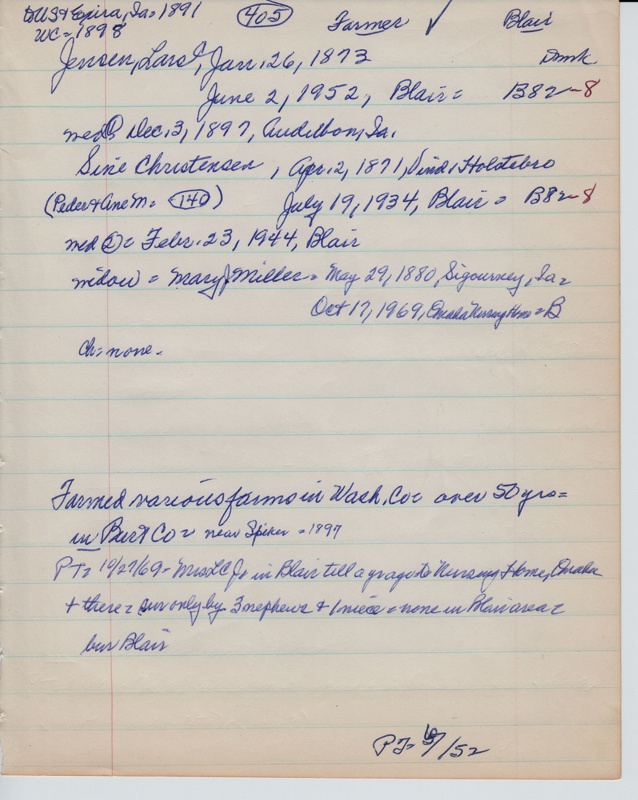 to US & Exira, Ia = 1891 405 Farmer ✓ Blair
WC = 1898
Jensen, Lars, Jan. 26, 1873 Dmk
June 2, 1952, Blair = B82-8
med ① Dec. 3, 1897, Audubon, Ia.
Sine Christensen, Apr. 2, 1871, Vind, Holstebro
(Peder & Ane M = 140) July 19, 1934, Blair = B82-8
med ② = Febr. 23, 1944, Blair
widow = Mary J. Miller = May 29, 1880, Sigourney, Ia =
Oct 17, 1969, Omaha Nursing Home = B
ch = none -
Farmed various farms in Wash. Co = over 50 yrs =
in Burt Co = near Spiker = 1897
PT = 10/27/69 = Mrs LC J = in Blair till a yr ago to Nursing Home, Omaha
& there = sur only by 3 nephews & 1 niece = none in Blair area =
bur Blair
PT = 6/52